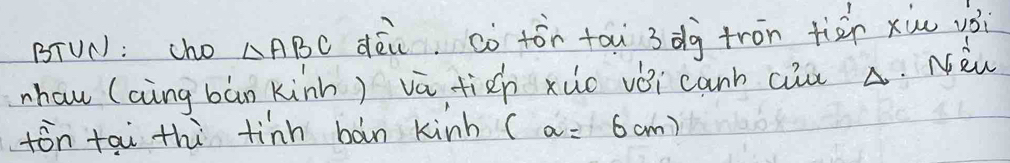 BTVN: cho △ABC đều. Có tồn tại 3 đg tròn tiếp xúc với
nhau (cùng bán kính) và tiếp xúc với cạnh của △. Nếu
tồn tại thì tính bán kính ( a = 6 cm)